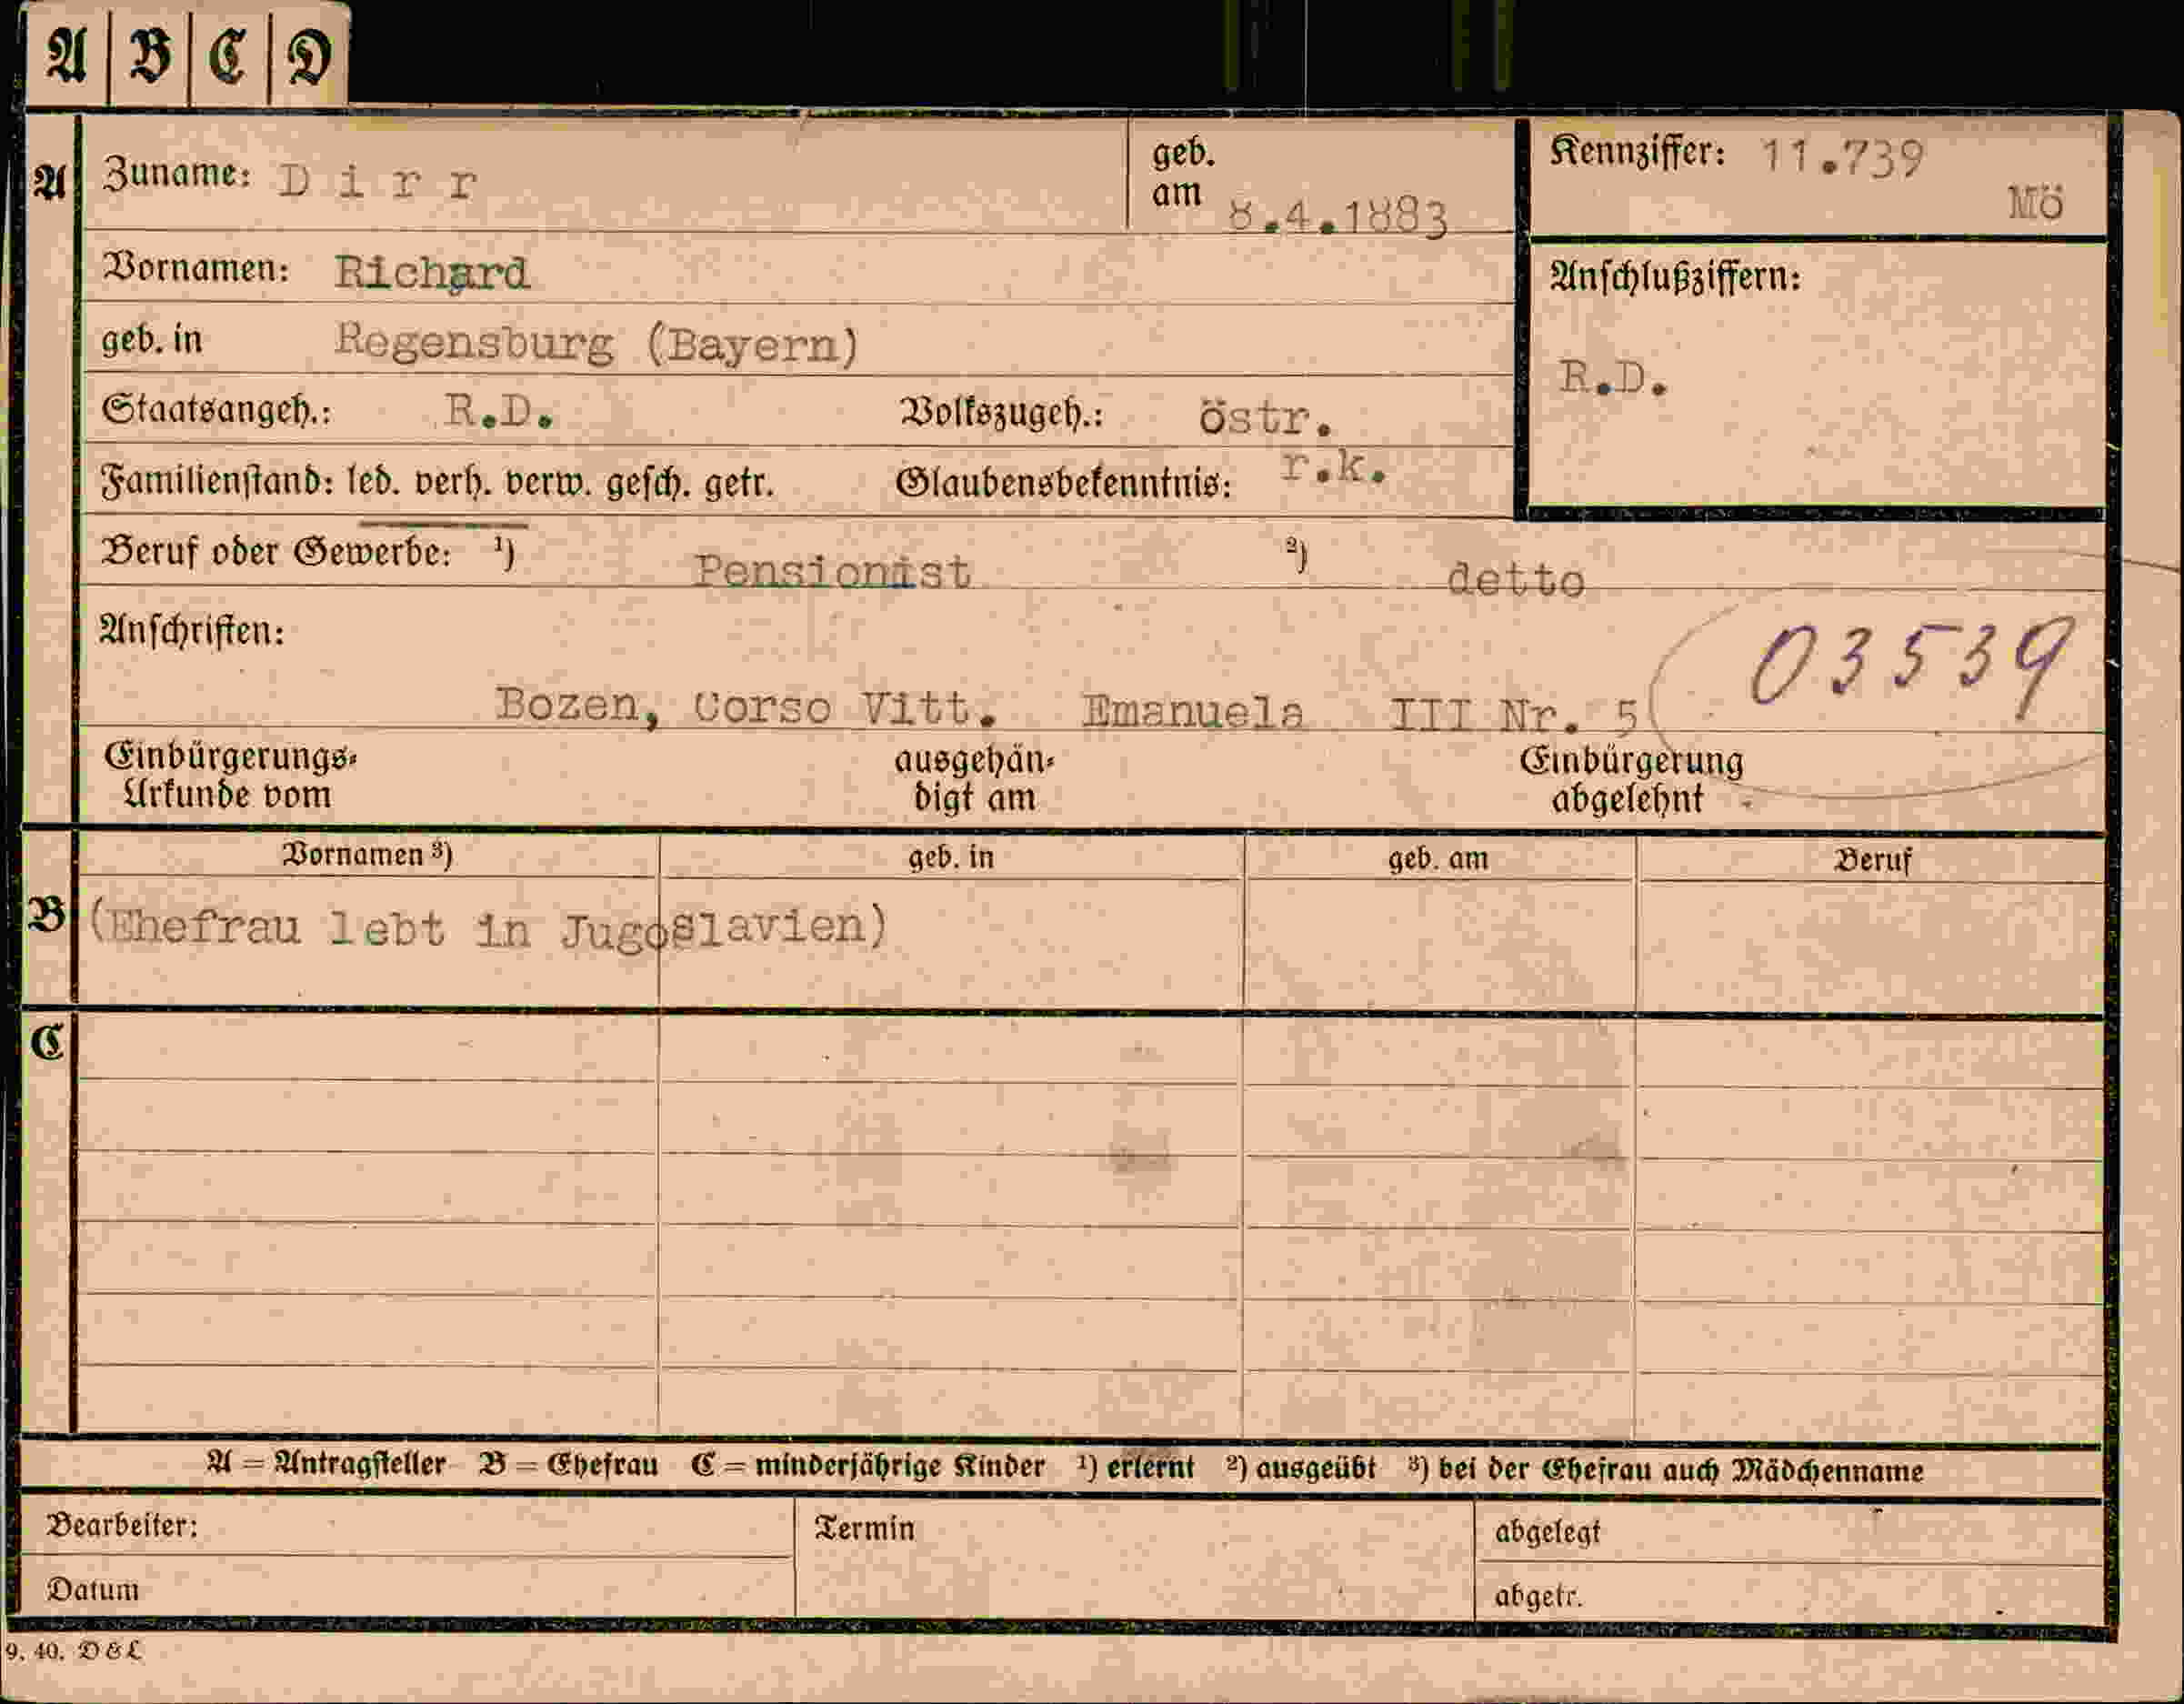 A B C D
A Zuname: Dirr geb. am 8.4.1883 Kennziffer: 11.739
Mö
Vornamen: Richard Anschlußziffern:
geb. in Regensburg (Bayern)
R.D.
Staatsangeh.: R.D. Volkszugeh.: östr.
Familienstand: led. verh. verw. gesch. getr. Glaubensbekenntnis: r.k.
Beruf oder Gewerbe: ¹) Pensionist ²) detto
Anschriften: 03539
Bozen, Corso Vitt. Emanuela III Nr. 5
Einbürgerungs- ausgehän- Einbürgerung
Urkunde vom digt am abgelehnt
Vornamen ³) geb. in geb. am Beruf
B (Ehefrau lebt in Jugoslavien)
C
A = Antragsteller B = Ehefrau C = minderjährige Kinder ¹) erlernt ²) ausgeübt ³) bei der Ehefrau auch Mädchenname
Bearbeiter: Termin abgelegt
Datum abgetr.
9. 40. D&L